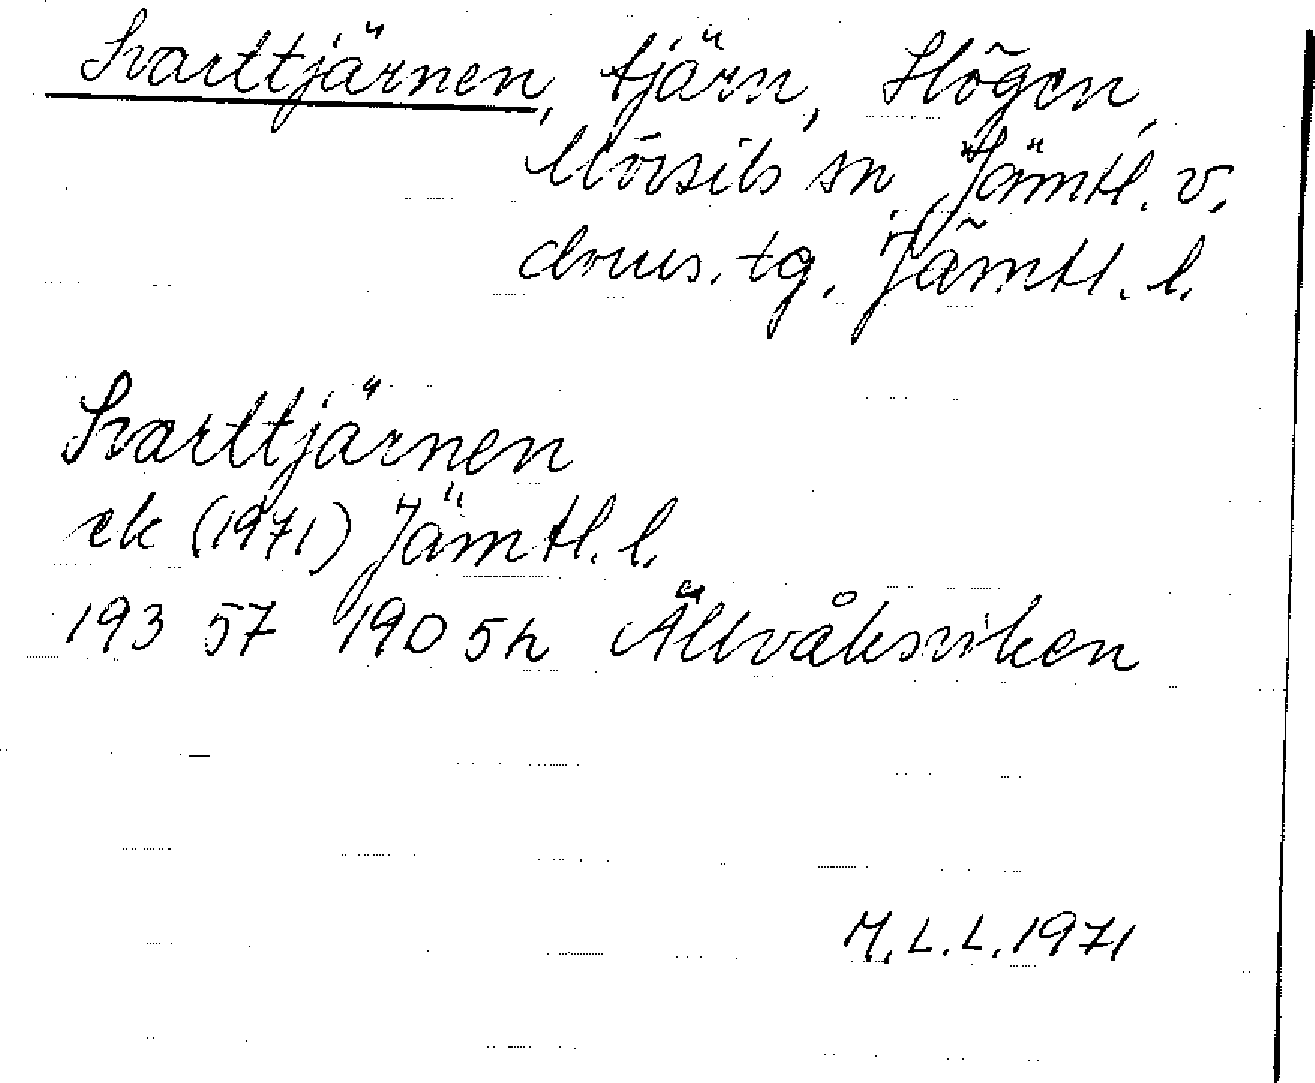 Svarttjärnen, tjärn, Högen,
Mörsils sn, Jämtl. v.
doms. tg. Jämtl. l.
Svarttjärnen
ek (1971) Jämtl. l.
193 57 19D 5h Ällvåksviken
M.L.L. 1971